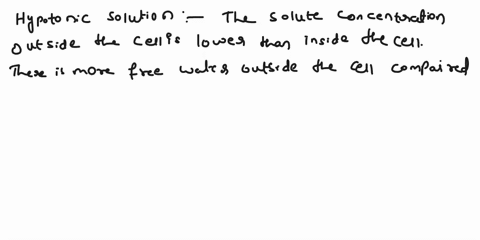 Hypotonic Solution :- The solute concentration
outside the cell is lower than inside the cell.
There is more free water outside the cell compaired